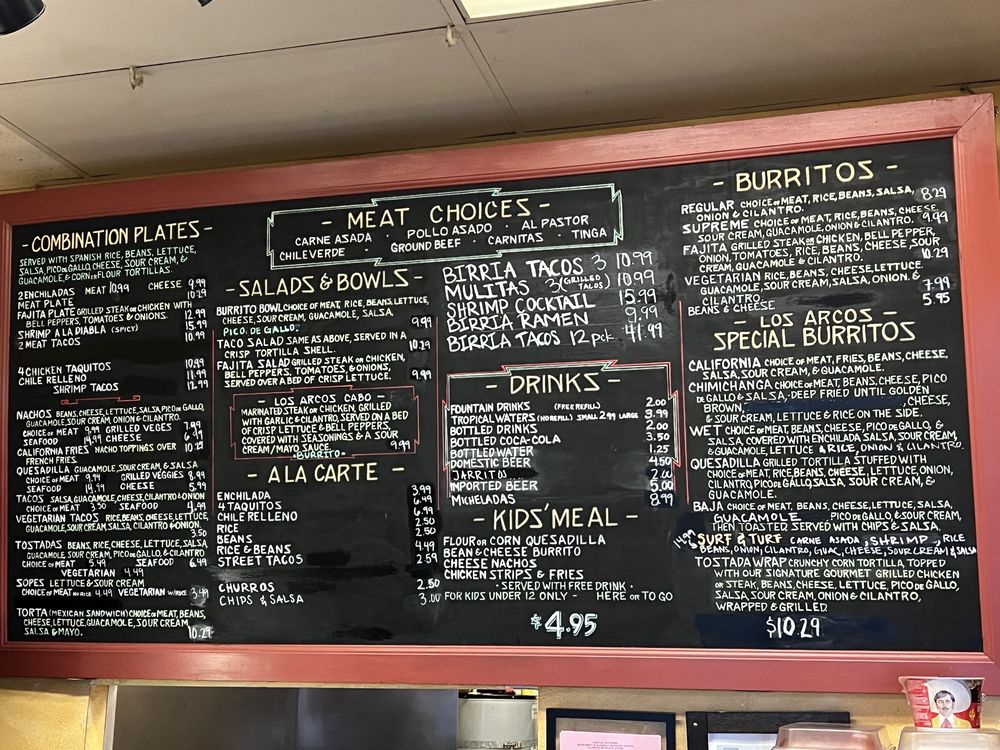 - COMBINATION PLATES -
SERVED WITH SPANISH RICE, BEANS, LETTUCE,
SALSA, PICO DE GALLO, CHEESE, SOUR CREAM, &
GUACAMOLE & CORN OR FLOUR TORTILLAS.
2 ENCHILADAS MEAT 10.99 CHEESE 9.99
MEAT PLATE 10.29
FAJITA PLATE GRILLED STEAK OR CHICKEN WITH
BELL PEPPERS, TOMATOES & ONIONS. 12.99
SHRIMP A LA DIABLA (SPICY) 15.99
2 MEAT TACOS 10.99
4 CHICKEN TAQUITOS 10.99
CHILE RELLENO 11.99
SHRIMP TACOS 12.99
NACHOS BEANS, CHEESE, LETTUCE, SALSA, PICO DE GALLO,
GUACAMOLE, SOUR CREAM, ONION & CILANTRO.
CHOICE OF MEAT 9.99 GRILLED VEGES 7.99
SEAFOOD 14.99 CHEESE 6.99
CALIFORNIA FRIES NACHO TOPPINGS OVER 10.29
FRENCH FRIES.
QUESADILLA GUACAMOLE, SOUR CREAM, & SALSA
CHOICE OF MEAT 9.99 GRILLED VEGGIES 8.99
SEAFOOD 14.99 CHEESE 5.99
TACOS SALSA, GUACAMOLE, CHEESE, CILANTRO & ONION
CHOICE OF MEAT 3.50 SEAFOOD 4.99
VEGETARIAN TACOS RICE, BEANS, CHEESE, LETTUCE,
GUACAMOLE, SOUR CREAM, SALSA, CILANTRO & ONION.
3.50
TOSTADAS BEANS, RICE, CHEESE, LETTUCE, SALSA,
GUACAMOLE, SOUR CREAM, PICO DE GALLO, & CILANTRO
CHOICE OF MEAT 5.49 SEAFOOD 6.49
VEGETARIAN 4.49
SOPES LETTUCE & SOUR CREAM
CHOICE OF MEAT NO RICE 4.49 VEGETARIAN W/RICE 3.49
TORTA (MEXICAN SANDWICH) CHOICE OF MEAT, BEANS,
CHEESE, LETTUCE, GUACAMOLE, SOUR CREAM,
SALSA & MAYO. 10.29
- MEAT CHOICES -
CARNE ASADA · POLLO ASADO · AL PASTOR
CHILE VERDE · GROUND BEEF · CARNITAS · TINGA
- SALADS & BOWLS -
BURRITO BOWL CHOICE OF MEAT, RICE, BEANS, LETTUCE,
CHEESE, SOUR CREAM, GUACAMOLE, SALSA,
PICO DE GALLO. 9.99
TACO SALAD SAME AS ABOVE, SERVED IN A
CRISP TORTILLA SHELL. 10.29
FAJITA SALAD GRILLED STEAK OR CHICKEN,
BELL PEPPERS, TOMATOES, & ONIONS,
SERVED OVER A BED OF CRISP LETTUCE. 9.99
- LOS ARCOS CABO -
MARINATED STEAK OR CHICKEN, GRILLED
WITH GARLIC & CILANTRO, SERVED ON A BED
OF CRISP LETTUCE & BELL PEPPERS,
COVERED WITH SEASONINGS & A SOUR
CREAM/MAYO SAUCE. 9.99
·BURRITO·
- A LA CARTE -
ENCHILADA 3.99
4 TAQUITOS 6.49
CHILE RELLENO 6.99
RICE 2.50
BEANS 2.50
RICE & BEANS 4.49
STREET TACOS 2.59
CHURROS 2.50
CHIPS & SALSA 3.00
BIRRIA TACOS 3 10.99
MULITAS 3 (GRILLED TACOS) 10.99
SHRIMP COCKTAIL 15.99
BIRRIA RAMEN 9.99
BIRRIA TACOS 12 pck. 41.99
- DRINKS -
FOUNTAIN DRINKS (FREE REFILL) 2.00
TROPICAL WATERS (NO REFILL) SMALL 2.99 LARGE 3.99
BOTTLED DRINKS 2.00
BOTTLED COCA-COLA 3.50
BOTTLED WATER 1.25
DOMESTIC BEER 4.50
JARRITO 2.00
IMPORTED BEER 5.00
MICHELADAS 8.99
- KIDS' MEAL -
FLOUR OR CORN QUESADILLA
BEAN & CHEESE BURRITO
CHEESE NACHOS
CHICKEN STRIPS & FRIES
· SERVED WITH FREE DRINK ·
FOR KIDS UNDER 12 ONLY - HERE OR TO GO
$4.95
- BURRITOS -
REGULAR CHOICE OF MEAT, RICE, BEANS, SALSA, 8.29
ONION & CILANTRO.
SUPREME CHOICE OF MEAT, RICE, BEANS, CHEESE, 9.99
SOUR CREAM, GUACAMOLE, ONION & CILANTRO.
FAJITA GRILLED STEAK OR CHICKEN, BELL PEPPER,
ONION, TOMATOES, RICE, BEANS, CHEESE, SOUR
CREAM, GUACAMOLE & CILANTRO. 10.29
VEGETARIAN RICE, BEANS, CHEESE, LETTUCE,
GUACAMOLE, SOUR CREAM, SALSA, ONION &
CILANTRO. 7.99
BEANS & CHEESE 5.95
- LOS ARCOS -
SPECIAL BURRITOS
CALIFORNIA CHOICE OF MEAT, FRIES, BEANS, CHEESE,
SALSA, SOUR CREAM, & GUACAMOLE.
CHIMICHANGA CHOICE OF MEAT, BEANS, CHEESE, PICO
DE GALLO & SALSA, DEEP FRIED UNTIL GOLDEN
BROWN, , CHEESE,
& SOUR CREAM, LETTUCE & RICE ON THE SIDE.
WET CHOICE OF MEAT, BEANS, CHEESE, PICO DE GALLO, &
SALSA, COVERED WITH ENCHILADA SALSA, SOUR CREAM,
& GUACAMOLE, LETTUCE & RICE, ONION & CILANTRO.
QUESADILLA GRILLED TORTILLA STUFFED WITH
CHOICE OF MEAT, RICE, BEANS, CHEESE, LETTUCE, ONION,
CILANTRO, PICO DE GALLO, SALSA, SOUR CREAM, &
GUACAMOLE.
BAJA CHOICE OF MEAT, BEANS, CHEESE, LETTUCE, SALSA,
GUACAMOLE PICO DE GALLO, & SOUR CREAM,
THEN TOASTED. SERVED WITH CHIPS & SALSA.
SURF & TURF CARNE ASADA, SHRIMP, RICE
BEANS, ONION, CILANTRO, GUAC, CHEESE, SOUR CREAM & SALSA
TOSTADA WRAP CRUNCHY CORN TORTILLA, TOPPED
WITH OUR SIGNATURE GOURMET GRILLED CHICKEN
OR STEAK, BEANS, CHEESE, LETTUCE, PICO DE GALLO,
SALSA, SOUR CREAM, ONION & CILANTRO,
WRAPPED & GRILLED.
$10.29